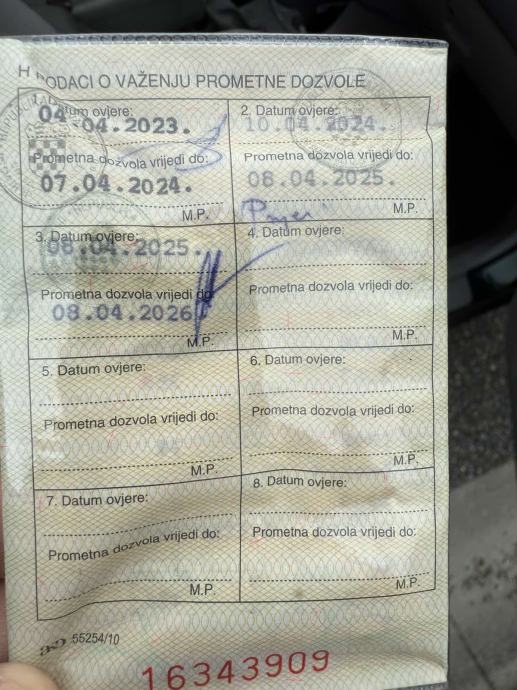 H PODACI O VAŽENJU PROMETNE DOZVOLE
1. Datum ovjere:
04.04.2023.
Prometna dozvola vrijedi do:
07.04.2024.
M.P.
2. Datum ovjere:
10.04.2024.
Prometna dozvola vrijedi do:
08.04.2025.
M.P.
3. Datum ovjere:
08.04.2025.
Prometna dozvola vrijedi do:
08.04.2026
M.P.
4. Datum ovjere:
Prometna dozvola vrijedi do:
M.P.
5. Datum ovjere:
Prometna dozvola vrijedi do:
M.P.
6. Datum ovjere:
Prometna dozvola vrijedi do:
M.P.
7. Datum ovjere:
Prometna dozvola vrijedi do:
M.P.
8. Datum ovjere:
Prometna dozvola vrijedi do:
M.P.
55254/10
16343909